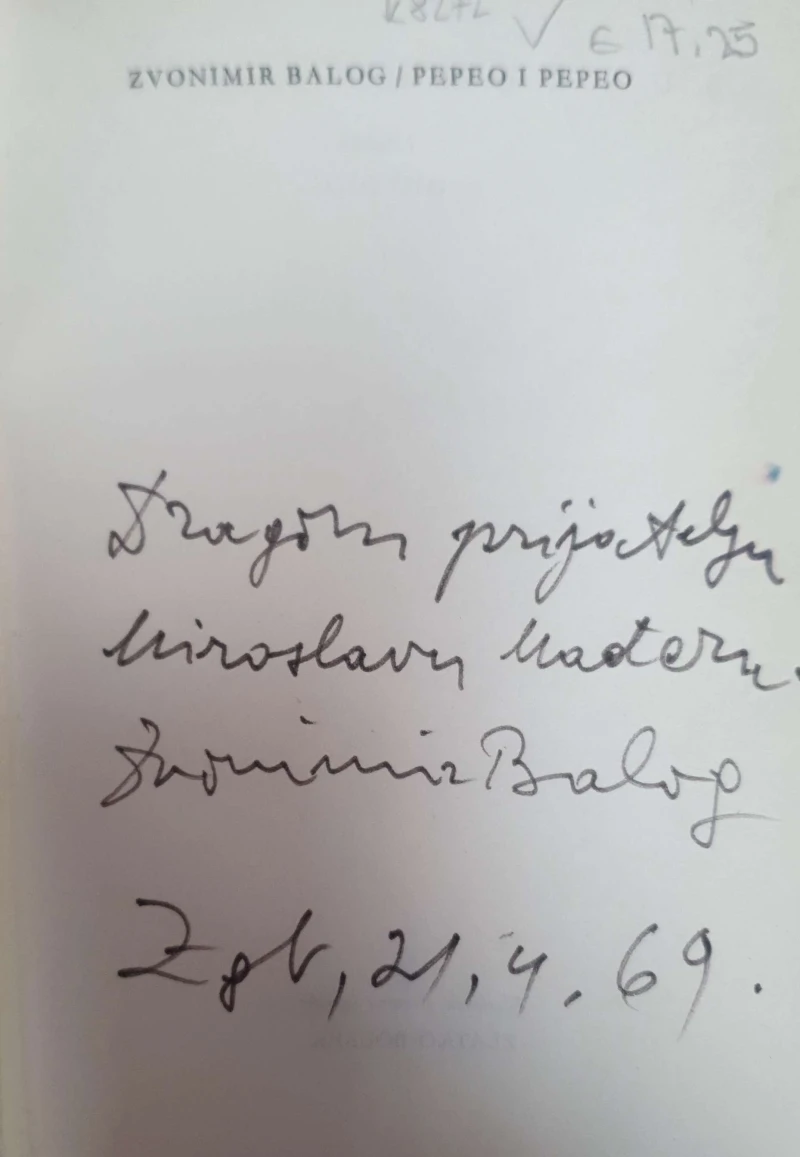 € 17,25
ZVONIMIR BALOG / PEPEO I PEPEO
Dragom prijatelju
Miroslavu Mađeru.
Zvonimir Balog
Zgb, 21, 4, 69.